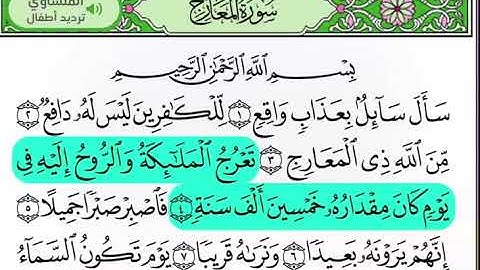 المنشاوي
ترديد أطفال
سورة المعارج
بِسْمِ اللَّهِ الرَّحْمَٰنِ الرَّحِيمِ
سَأَلَ سَآئِلُۢ بِعَذَابٖ وَاقِعٖ ١ لِّلۡكَٰفِرِينَ لَيۡسَ لَهُۥ دَافِعٞ ٢
مِّنَ ٱللَّهِ ذِي ٱلۡمَعَارِجِ ٣ تَعۡرُجُ ٱلۡمَلَٰٓئِكَةُ وَٱلرُّوحُ إِلَيۡهِ فِي
يَوۡمٖ كَانَ مِقۡدَارُهُۥ خَمۡسِينَ أَلۡفَ سَنَةٖ ٤ فَٱصۡبِرۡ صَبۡرٗا جَمِيلًا ٥
إِنَّهُمۡ يَرَوۡنَهُۥ بَعِيدٗا ٦ وَنَرَىٰهُ قَرِيبٗا ٧ يَوۡمَ تَكُونُ ٱلسَّمَآءُ